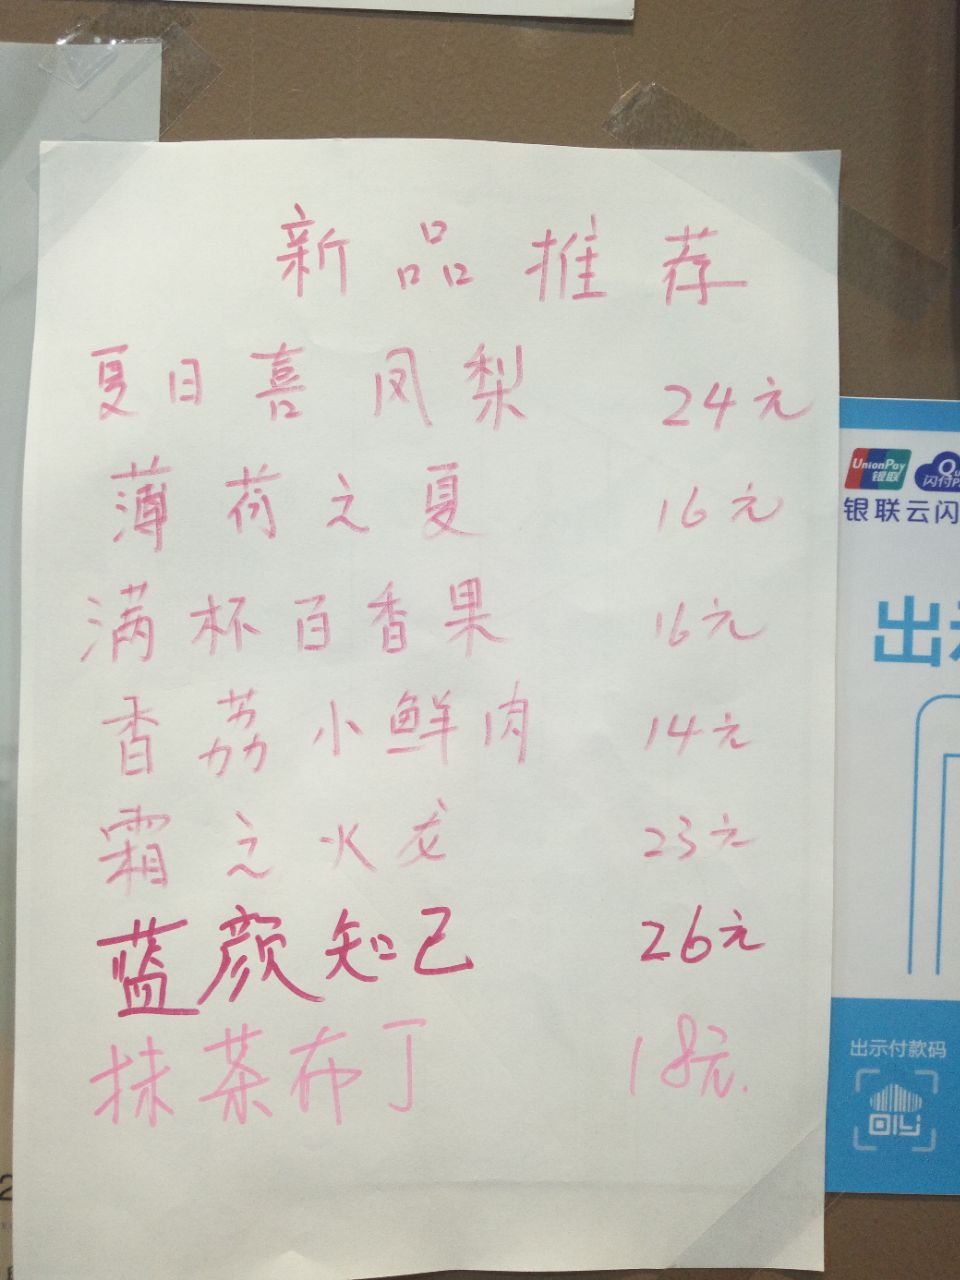 新品推荐
夏日喜凤梨 24元
薄荷之夏 16元
满杯百香果 16元
香荔小鲜肉 14元
霜之火龙 23元
蓝颜知己 26元
抹茶布丁 18元.
UnionPay
银联
闪付
银联云闪
出示
出示付款码